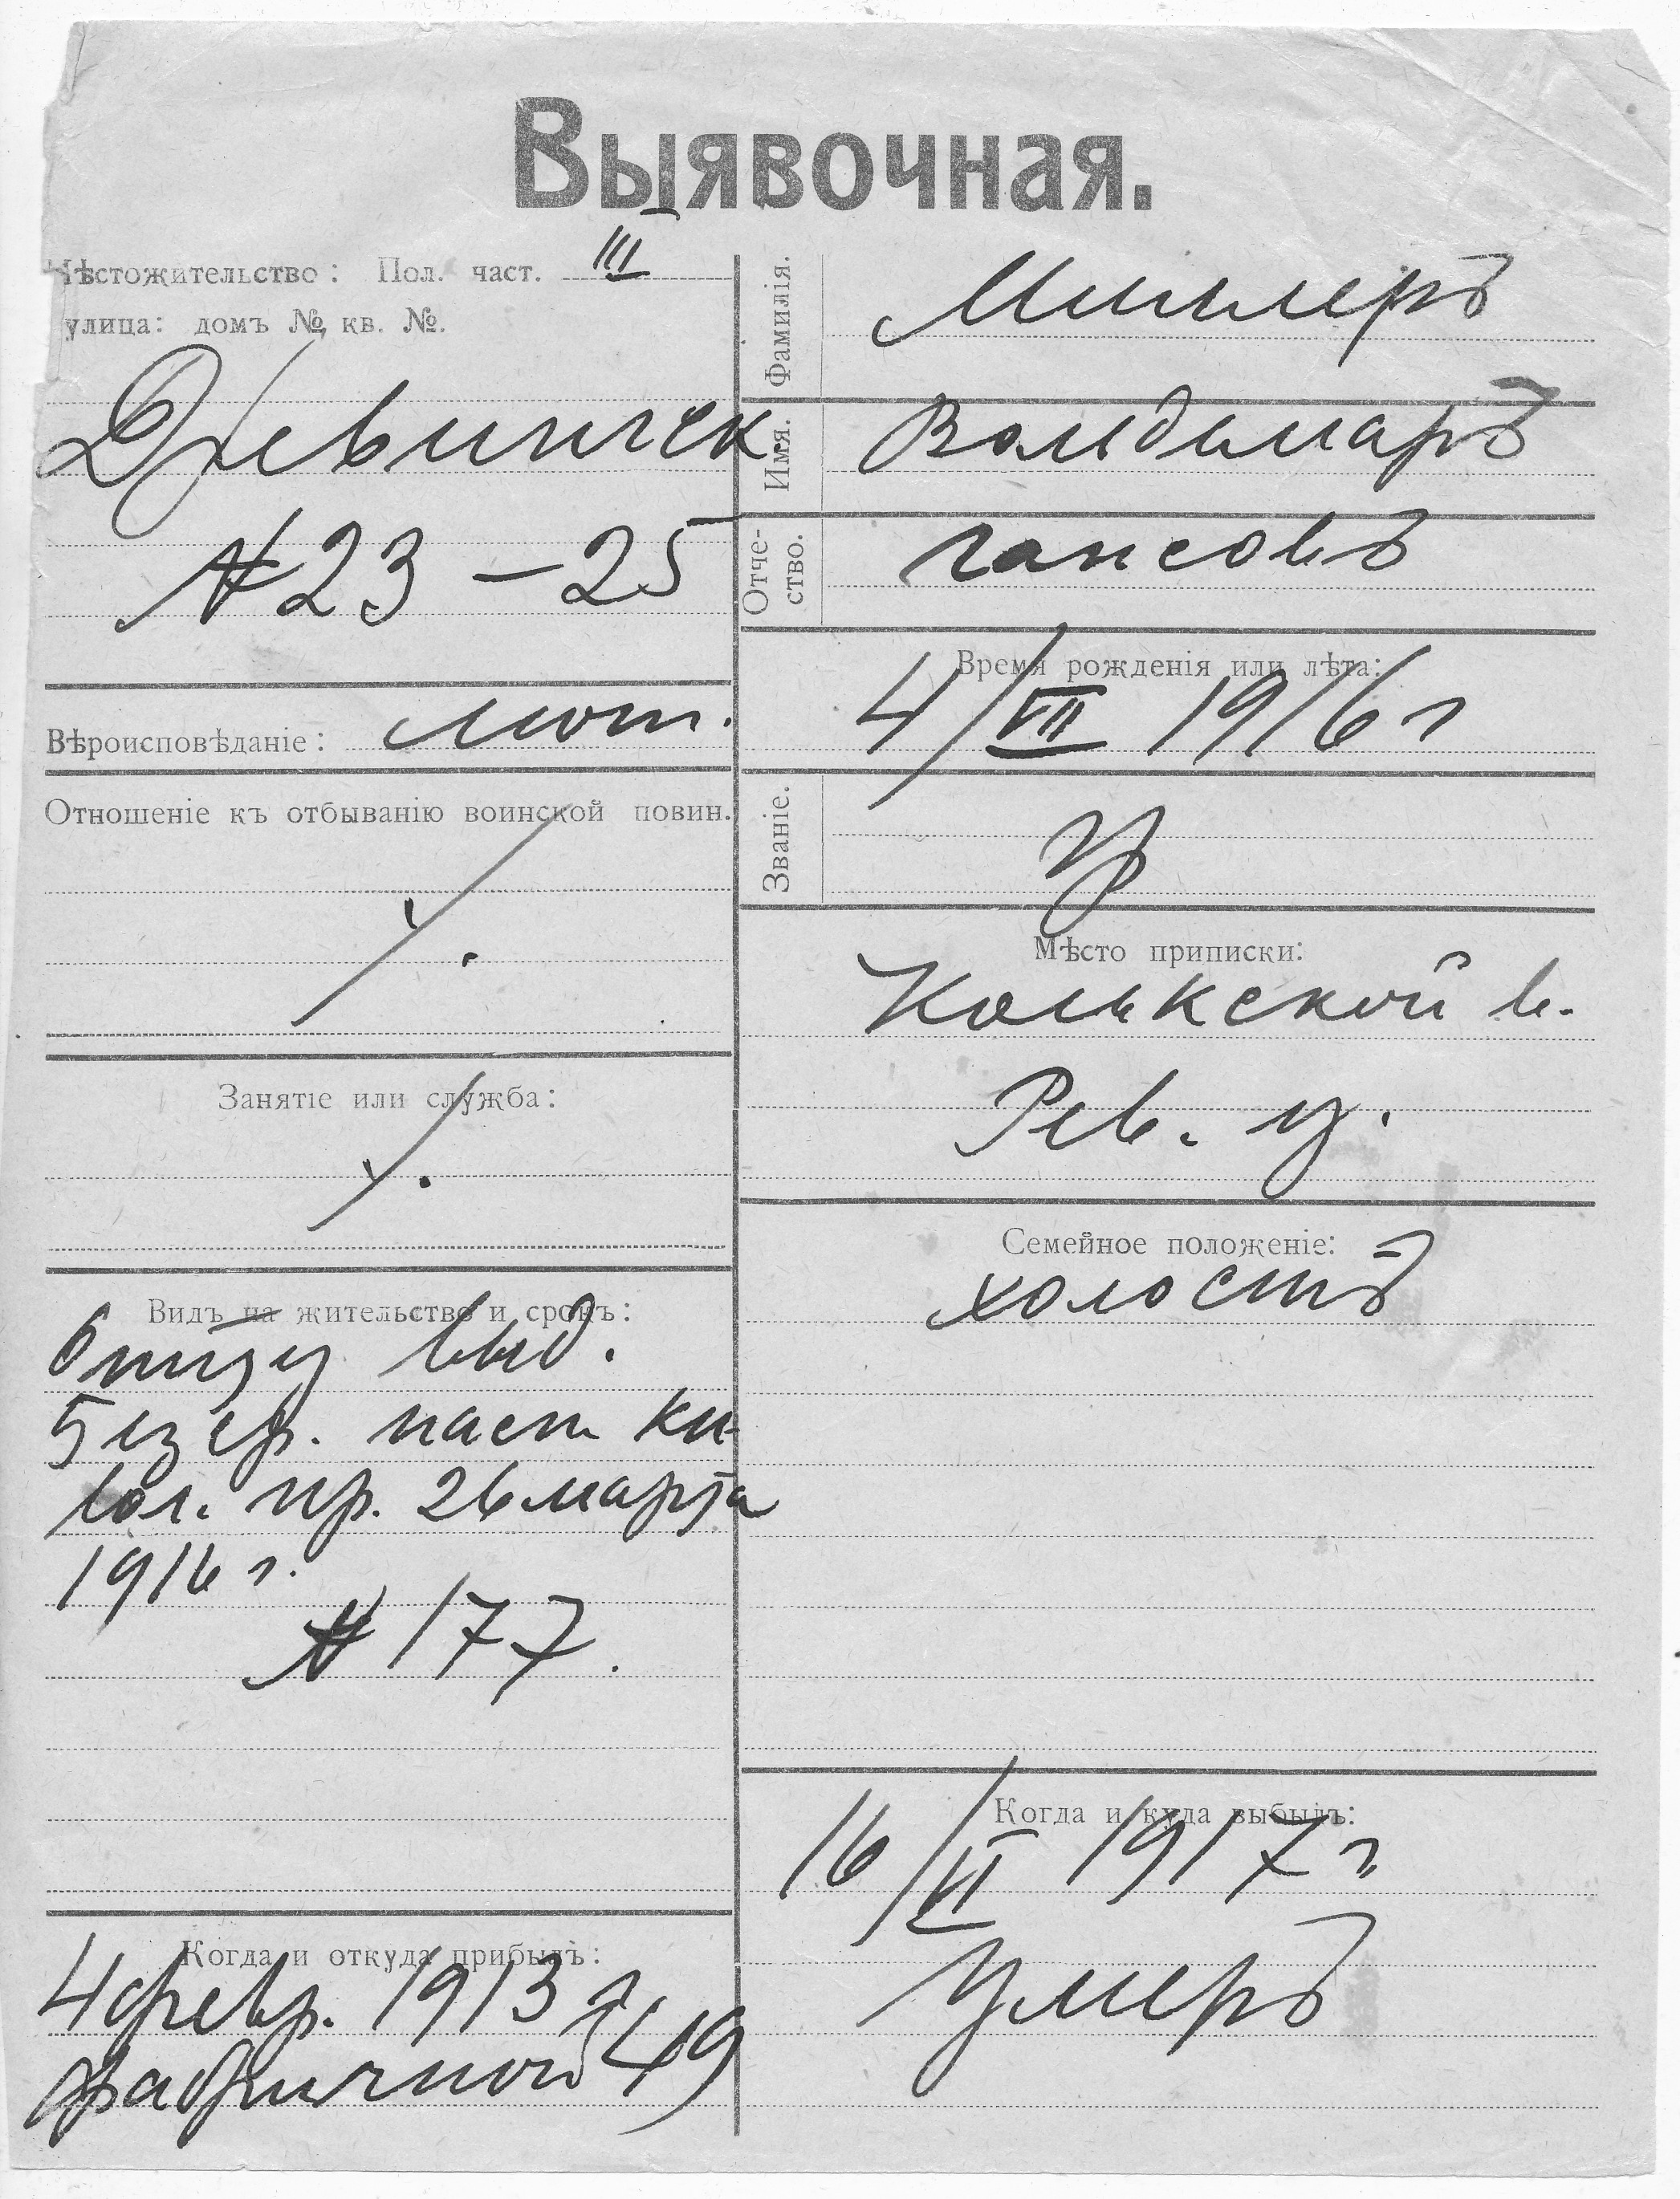 Выявочная.
Мѣстожительство: Пол. част. III
улица: домъ №, кв. №.
№ 23 – 25
Вѣроисповѣданіе: лют.
Отношеніе къ отбыванію воинской повин.
Занятіе или служба:
Видъ на жительство и срокъ:
выд.
пр. 26 марта
1916 г.
№ 177.
Когда и откуда прибылъ:
4 февр. 1913 г
фабричной 49
Фамилія. Миллеръ
Имя. Волдемаръ
Отче-
ство. Гансовъ
Время рожденія или лѣта:
4/VII 1916 г
Званіе.
Мѣсто приписки:
Колькской в.
Рев. у.
Семейное положеніе:
холостъ
Когда и куда выбылъ:
16/VI 1917 г
Умеръ